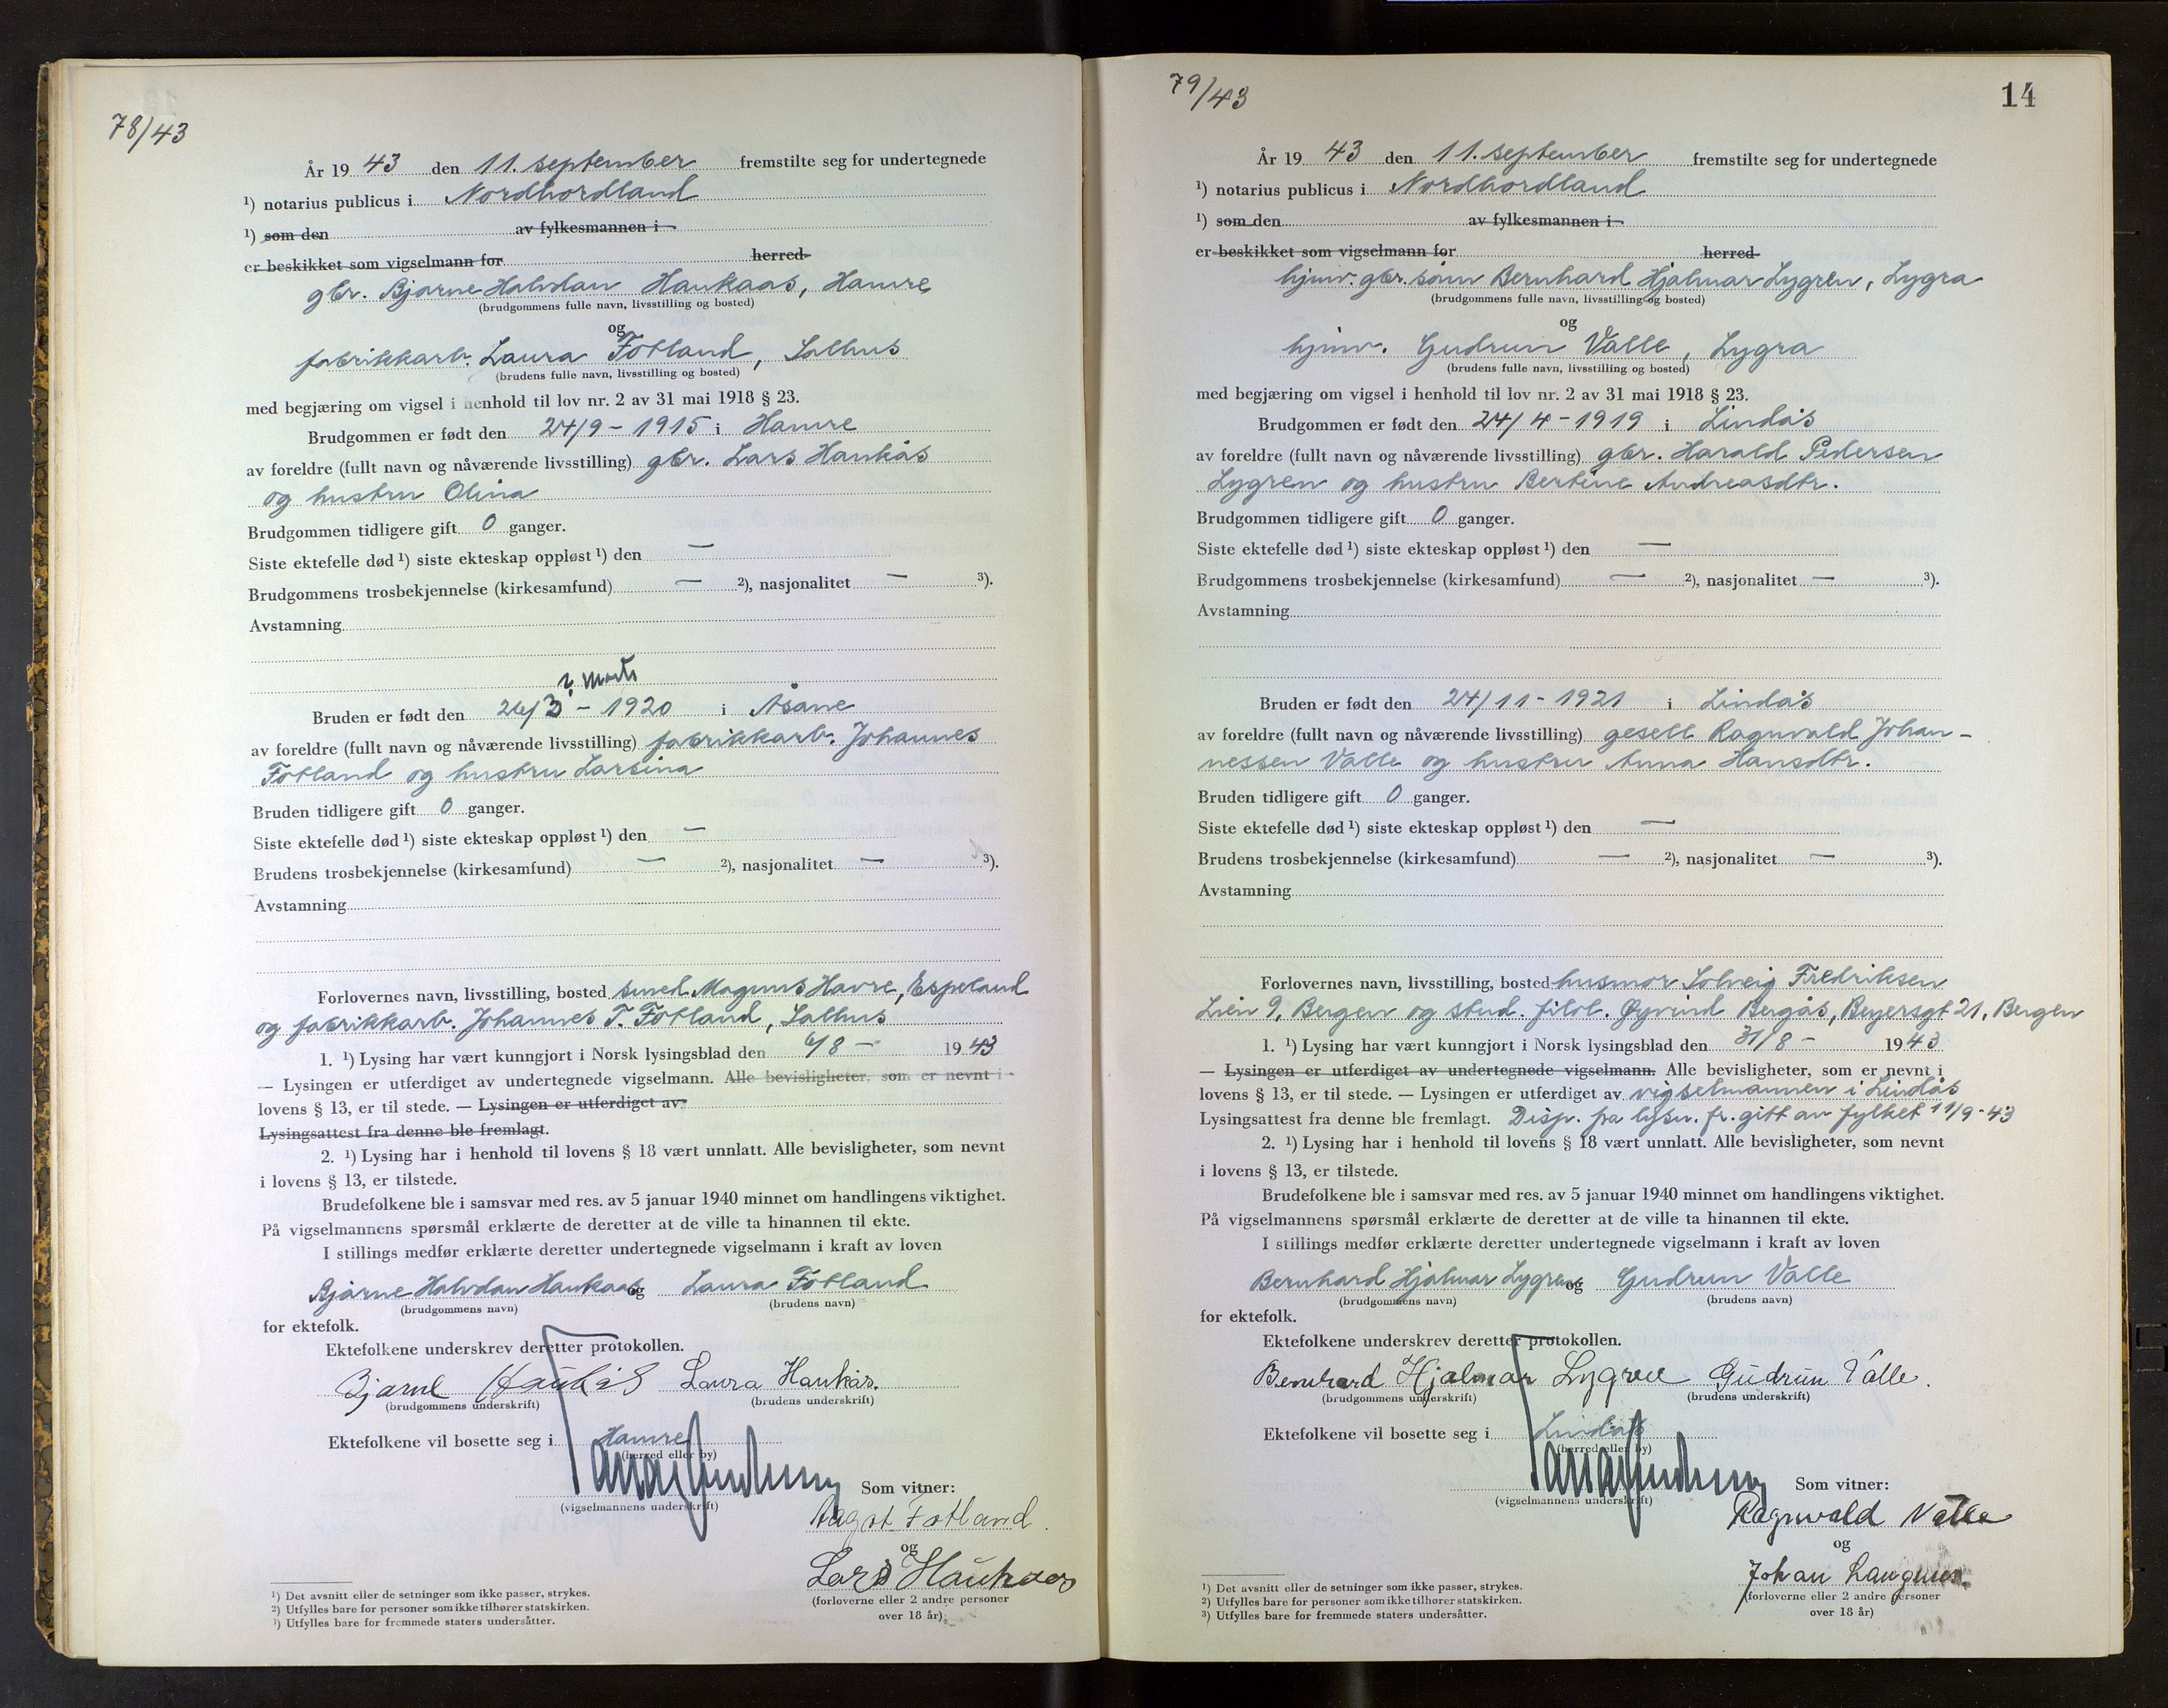 78/43
År 19 43 den 11. september fremstilte seg for undertegnede
¹) notarius publicus i Nordhordland
¹) som den av fylkesmannen i
er beskikket som vigselmann for herred
gbr. Bjarne Halvdan Haukaas, Hamre
(brudgommens fulle navn, livsstilling og bosted)
og
fabrikkarb. Laura Fotland, Salhus
(brudens fulle navn, livsstilling og bosted)
med begjæring om vigsel i henhold til lov nr. 2 av 31 mai 1918 § 23.
Brudgommen er født den 24/9 - 1915 i Hamre
av foreldre (fullt navn og nåværende livsstilling) gbr. Lars Haukås
og hustru Olina
Brudgommen tidligere gift 0 ganger.
Siste ektefelle død ¹) siste ekteskap oppløst ¹) den —
Brudgommens trosbekjennelse (kirkesamfund) — ²), nasjonalitet — ³).
Avstamning
Bruden er født den 26/3 - 1920 i Åsane
av foreldre (fullt navn og nåværende livsstilling) fabrikkarb. Johannes
Fotland og hustru Larsina
Bruden tidligere gift 0 ganger.
Siste ektefelle død ¹) siste ekteskap oppløst ¹) den —
Brudens trosbekjennelse (kirkesamfund) — ²), nasjonalitet — ³).
Avstamning
Forlovernes navn, livsstilling, bosted smed Magnus Havre, Espeland
og fabrikkarb. Johannes T. Fotland, Salhus
1. ¹) Lysing har vært kunngjort i Norsk lysingsblad den 6/8 - 1943
— Lysingen er utferdiget av undertegnede vigselmann. Alle bevisligheter, som er nevnt i
lovens § 13, er til stede. — Lysingen er utferdiget av
Lysingsattest fra denne ble fremlagt.
2. ¹) Lysing har i henhold til lovens § 18 vært unnlatt. Alle bevisligheter, som nevnt
i lovens § 13, er tilstede.
Brudefolkene ble i samsvar med res. av 5 januar 1940 minnet om handlingens viktighet.
På vigselmannens spørsmål erklærte de deretter at de ville ta hinannen til ekte.
I stillings medfør erklærte deretter undertegnede vigselmann i kraft av loven
Bjarne Halvdan Haukaas og Laura Fotland
(brudgommens navn) (brudens navn)
for ektefolk.
Ektefolkene underskrev deretter protokollen.
Bjarne Haukås Laura Haukås.
(brudgommens underskrift) (brudens underskrift)
Ektefolkene vil bosette seg i Hamre
(herred eller by)
Som vitner:
(vigselmannens underskrift)
Aagot Fotland
og
Lars Haukaas
(forloverne eller 2 andre personer
over 18 år)
¹) Det avsnitt eller de setninger som ikke passer, strykes.
²) Utfylles bare for personer som ikke tilhører statskirken.
³) Utfylles bare for fremmede staters undersåtter.
79/43
14
År 19 43 den 11. september fremstilte seg for undertegnede
¹) notarius publicus i Nordhordland
¹) som den av fylkesmannen i
er beskikket som vigselmann for herred
hjmv. gbr. sønn Bernhard Hjalmar Lygren, Lygra
(brudgommens fulle navn, livsstilling og bosted)
og
hjmv. Gudrun Valle, Lygra
(brudens fulle navn, livsstilling og bosted)
med begjæring om vigsel i henhold til lov nr. 2 av 31 mai 1918 § 23.
Brudgommen er født den 24/4 - 1919 i Lindås
av foreldre (fullt navn og nåværende livsstilling) gbr. Harald Pedersen
Lygren og hustru Bertine Andreasdtr.
Brudgommen tidligere gift 0 ganger.
Siste ektefelle død ¹) siste ekteskap oppløst ¹) den —
Brudgommens trosbekjennelse (kirkesamfund) — ²), nasjonalitet — ³).
Avstamning
Bruden er født den 24/11 - 1921 i Lindås
av foreldre (fullt navn og nåværende livsstilling) gesell Ragnvald Johan-
nessen Valle og hustru Anna Hansdtr.
Bruden tidligere gift 0 ganger.
Siste ektefelle død ¹) siste ekteskap oppløst ¹) den —
Brudens trosbekjennelse (kirkesamfund) — ²), nasjonalitet — ³).
Avstamning
Forlovernes navn, livsstilling, bosted husmor Solveig Fredriksen
Lien 9, Bergen og stud. filol. Øyvind Bergås, Beyersgt 21, Bergen
1. ¹) Lysing har vært kunngjort i Norsk lysingsblad den 31/8 - 1943
— Lysingen er utferdiget av undertegnede vigselmann. Alle bevisligheter, som er nevnt i
lovens § 13, er til stede. — Lysingen er utferdiget av vigselmannen i Lindås
Lysingsattest fra denne ble fremlagt. Disp. fra lysn. fr. gitt av fylket 11/9-43
2. ¹) Lysing har i henhold til lovens § 18 vært unnlatt. Alle bevisligheter, som nevnt
i lovens § 13, er tilstede.
Brudefolkene ble i samsvar med res. av 5 januar 1940 minnet om handlingens viktighet.
På vigselmannens spørsmål erklærte de deretter at de ville ta hinannen til ekte.
I stillings medfør erklærte deretter undertegnede vigselmann i kraft av loven
Bernhard Hjalmar Lygren og Gudrun Valle
(brudgommens navn) (brudens navn)
for ektefolk.
Ektefolkene underskrev deretter protokollen.
Bernhard Hjalmar Lygren Gudrun Valle.
(brudgommens underskrift) (brudens underskrift)
Ektefolkene vil bosette seg i Lindås
(herred eller by)
Som vitner:
(vigselmannens underskrift)
Ragnvald Valle
og
Johan
(forloverne eller 2 andre personer
over 18 år)
¹) Det avsnitt eller de setninger som ikke passer, strykes.
²) Utfylles bare for personer som ikke tilhører statskirken.
³) Utfylles bare for fremmede staters undersåtter.